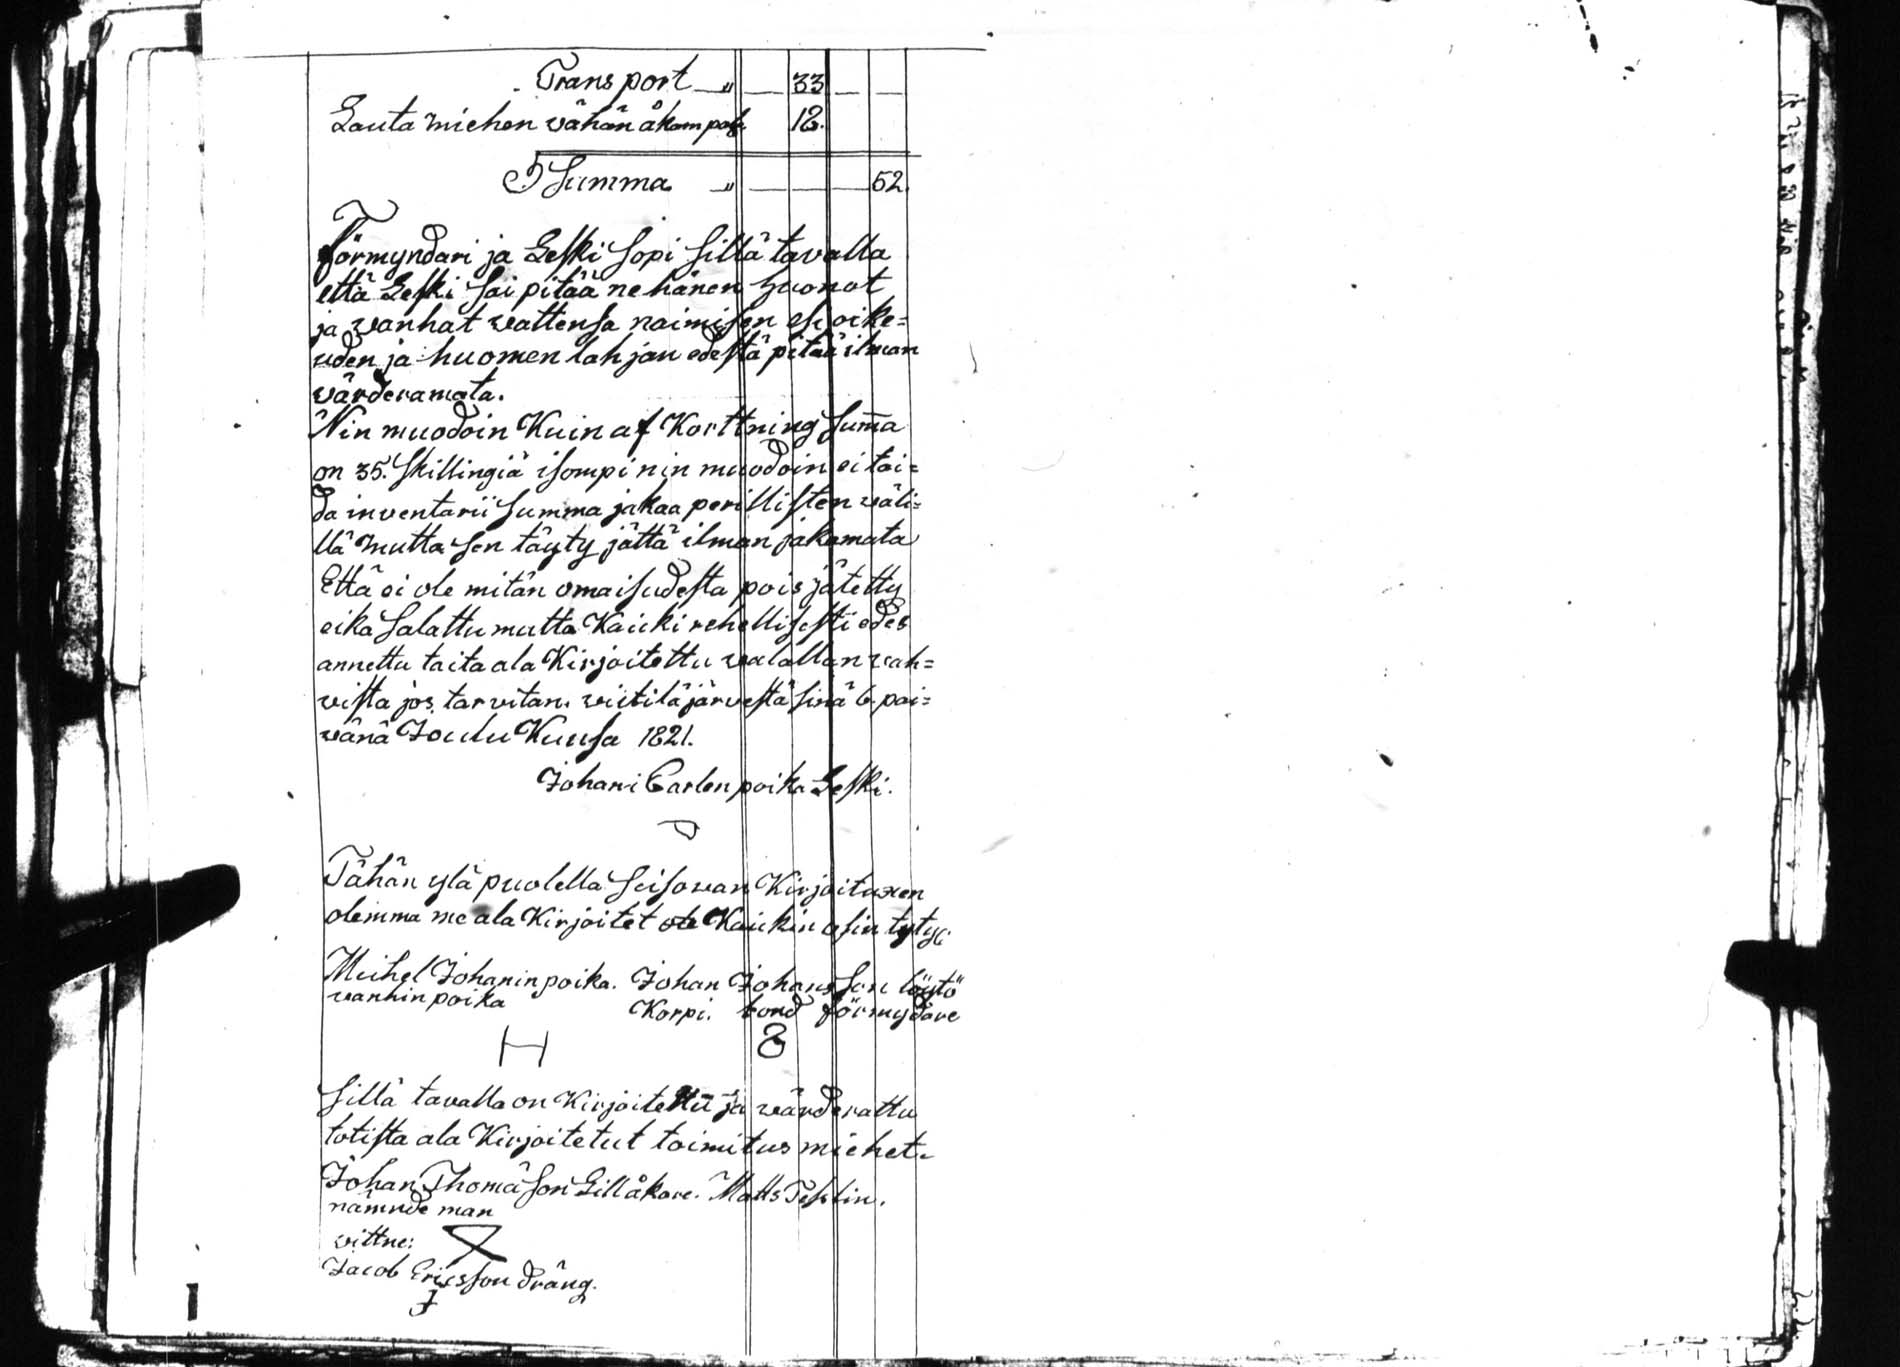 Transport " — 33 — —
Lauta miehen vähän åkom pasf. 18.
Summa " — — — 52
Förmyndari ja Leski sopi sillä tavalla
että Leski sai pitää ne hänen huonot
ja wanhat wattensa naimisen esi oike=
uden ja huomen lahjan edestä pitää ilman
värderamata.
Nin muodoin Kuin af Korttning sum̄a
on 35. skillingiä isompi nin muodoin ei tai=
da inventarii summa jakaa perillisten väli=
llä mutta sen täyty jättä ilman jakamata
Että ei ole mitän omaisudesta pois jätetty
eikä salattu mutta Kaicki rehellisesti edes
annettu taita ala Kirjoitettu walallan wah=
vista jos tarvitan. wiitiläjärvestä sinä 6. pai=
vänä Joulu Kuusa 1821.
Johani Carlen poika Leski.
Tähän ylä puolella seisowan Kirjoituxen
olemma me ala Kirjoitet Kaickin asin tytyc
Michel Johanin poika. Johan Johansson löytö
vanhin poika Korpi. bond förmydare
H
sillä tavalla on Kirjoitettu ja värderattu
totista ala Kirjoitetut toimitus miehet.
Johan Thomäson Lillåkare. Matts Teslin.
nämnde man
vittne:
Jacob Ericsson dräng.